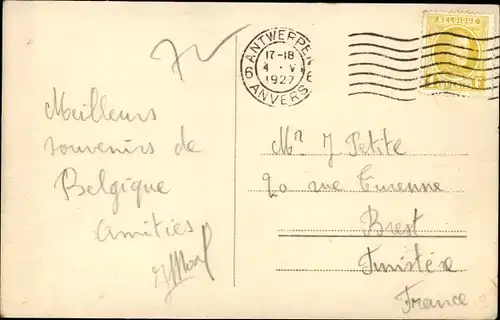 ANTWERPEN
6 6
17-18
4 · V
1927
ANVERS
BELGIQUE
Meilleurs
souvenirs de
Belgique
Amitiés
Mr J Petite
20 rue Turenne
Brest
Finistère
France